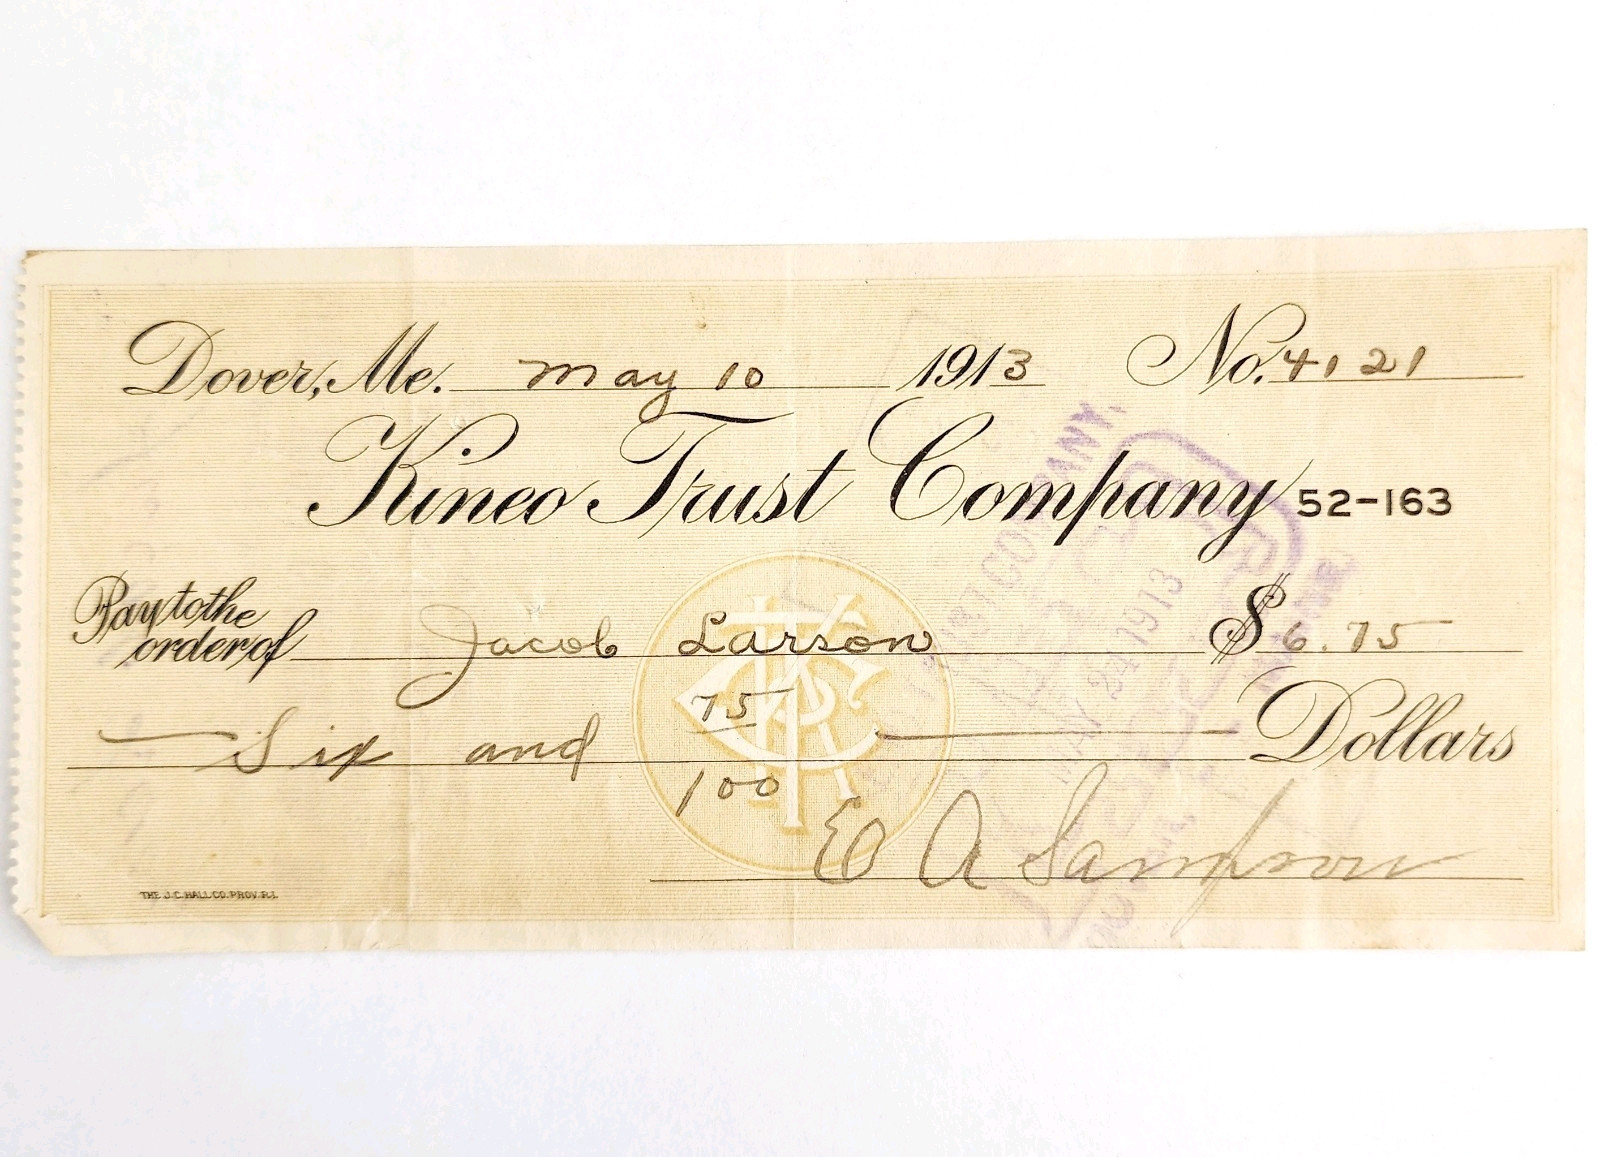 Dover, Me. May 10 1913 No. 4121
Kineo Trust Company 52-163
Pay to the
order of Jacob Larson $ 6.75
Six and 75/100 Dollars
E A Sampson
THE J.C. HALL CO. PROV. R.I.
COMPANY,
MAY 24 1913